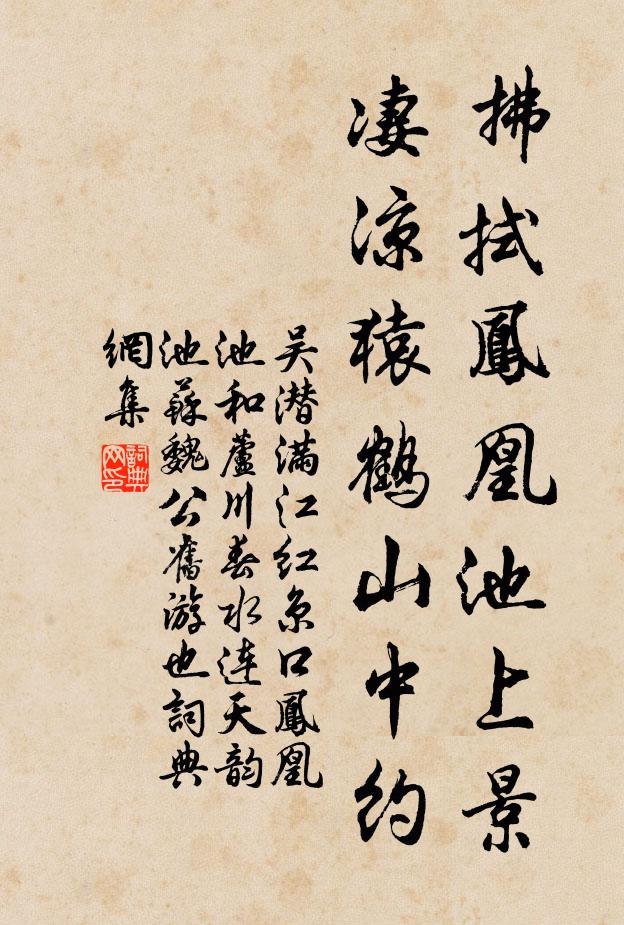 拂拭鳳凰池上景
凄涼猿鶴山中約
吴潜滿江红京口鳳凰
池和蘆川春水連天韵
池蘇魏公舊游也詞典
網集
詞典網印